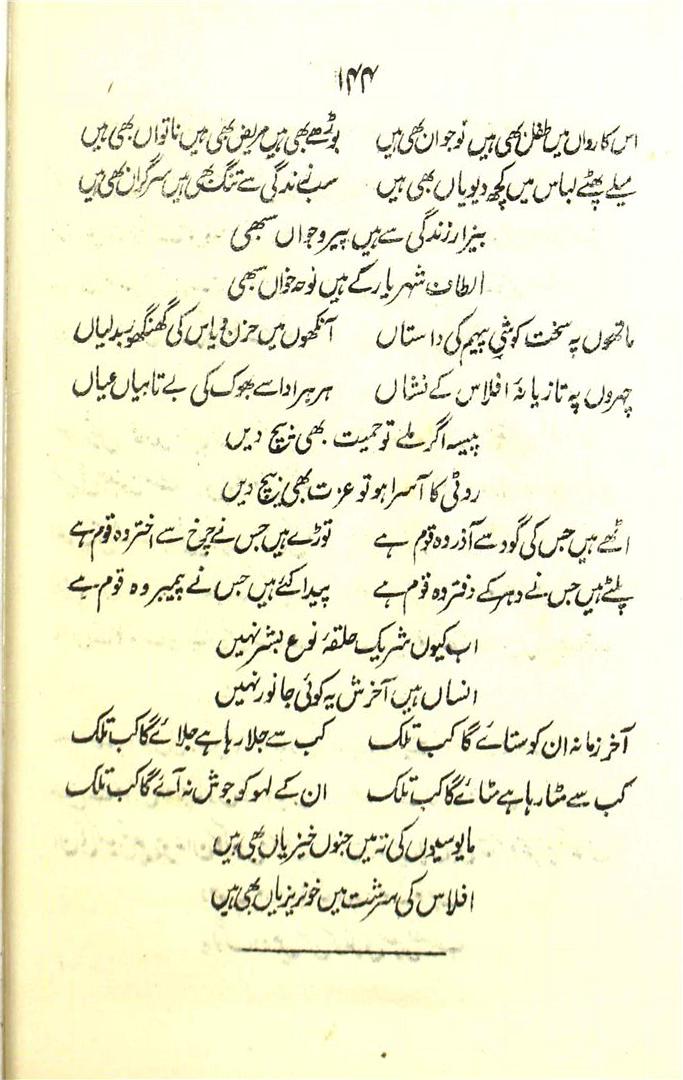 ۱۴۴
اس کارواں میں طفل بھی ہیں نوجوان بھی ہیں بوڑھے بھی ہیں مریض بھی ہیں ناتواں بھی ہیں
میلے پھٹے لباس میں کچھ دیویاں بھی ہیں سب زندگی سے تنگ بھی ہیں سرگراں بھی ہیں
بیزار زندگی سے ہیں پیر و جواں سبھی
الطاف شہریار کے ہیں نوحہ خواں سبھی
ماتھوں پہ سخت کوشیٔ پیہم کی داستاں آنکھوں میں حزن و یاس کی گھنگھور بدلیاں
چہروں پہ تازیانۂ افلاس کے نشاں ہر ہر ادا سے بھوک کی بے تابیاں عیاں
پیسہ اگر ملے تو حمیت بھی بیچ دیں
روٹی کا آسرا ہو تو عزت بھی بیچ دیں
اٹھے ہیں جس کی گود سے آذر وہ قوم ہے توڑے ہیں جس نے چرخ سے اختر وہ قوم ہے
پلٹے ہیں جس نے دہر کے دفتر وہ قوم ہے پیدا کئے ہیں جس نے پیمبر وہ قوم ہے
اب کیوں شریک حلقۂ نوع بشر نہیں
انساں ہیں آخرش یہ کوئی جانور نہیں
آخر زمانہ ان کو ستائے گا کب تلک کب سے جلا رہا ہے جلائے گا کب تلک
کب سے مٹا رہا ہے مٹائے گا کب تلک ان کے لہو کو جوش نہ آئے گا کب تلک
مایوسیوں کی تہ میں جنوں خیزیاں بھی ہیں
افلاس کی سرشت میں خونریزیاں بھی ہیں